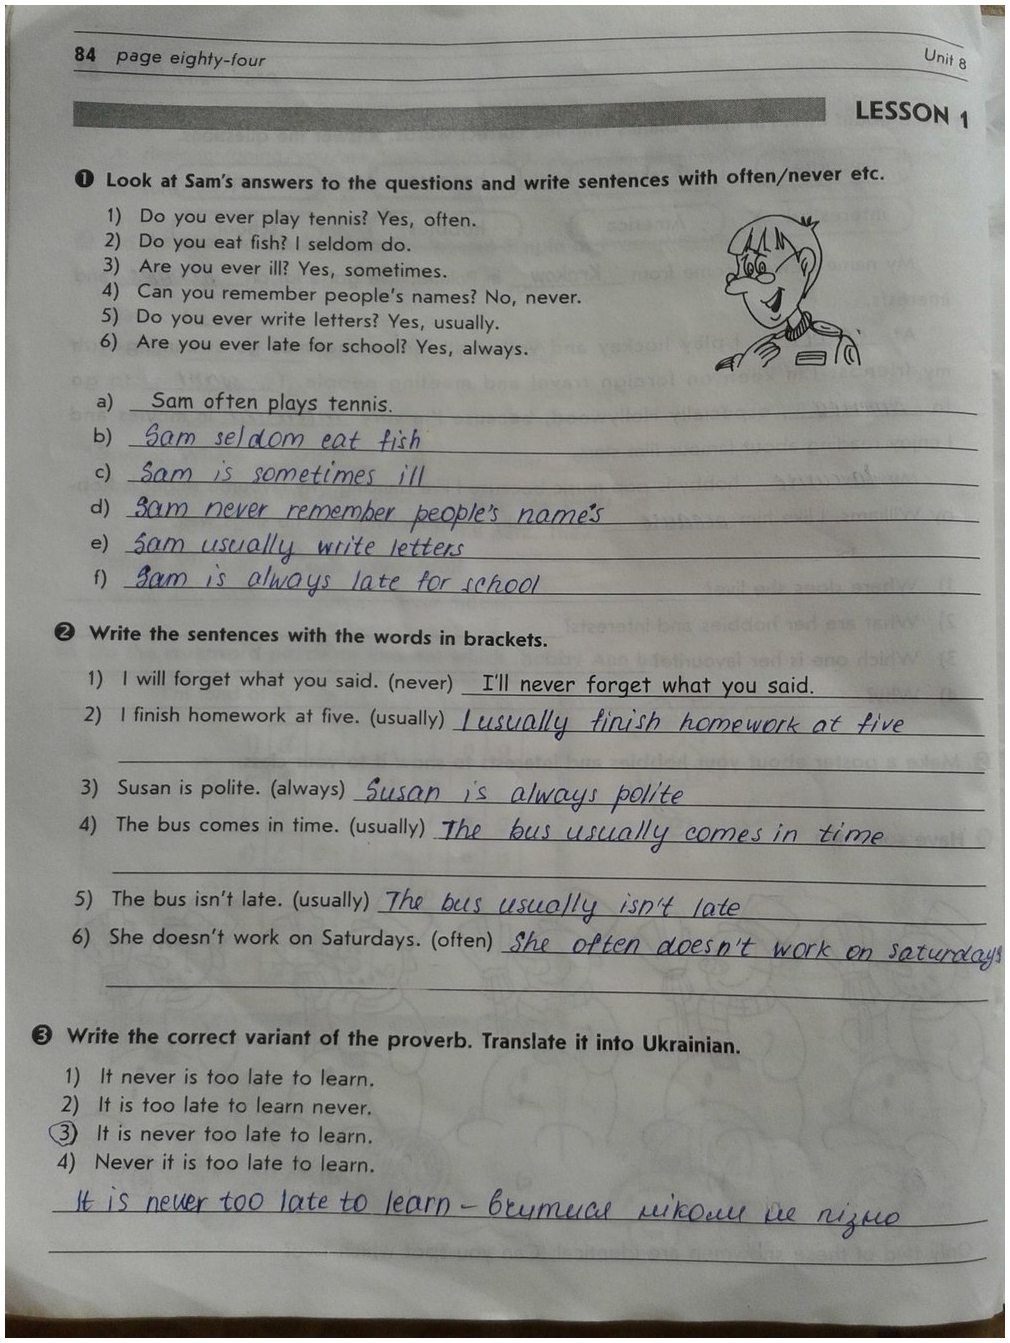 84 page eighty-four Unit 8
LESSON 1
❶ Look at Sam's answers to the questions and write sentences with often/never etc.
1) Do you ever play tennis? Yes, often.
2) Do you eat fish? I seldom do.
3) Are you ever ill? Yes, sometimes.
4) Can you remember people's names? No, never.
5) Do you ever write letters? Yes, usually.
6) Are you ever late for school? Yes, always.
a) Sam often plays tennis.
b) Sam seldom eat fish
c) Sam is sometimes ill
d) Sam never remember people's name's
e) Sam usually write letters
f) Sam is always late for school
❷ Write the sentences with the words in brackets.
1) I will forget what you said. (never) I'll never forget what you said.
2) I finish homework at five. (usually) I usually finish homework at five
3) Susan is polite. (always) Susan is always polite
4) The bus comes in time. (usually) The bus usually comes in time
5) The bus isn't late. (usually) The bus usually isn't late
6) She doesn't work on Saturdays. (often) She often doesn't work on saturdays
❸ Write the correct variant of the proverb. Translate it into Ukrainian.
1) It never is too late to learn.
2) It is too late to learn never.
3) It is never too late to learn.
4) Never it is too late to learn.
It is never too late to learn – вчитися ніколи не пізно